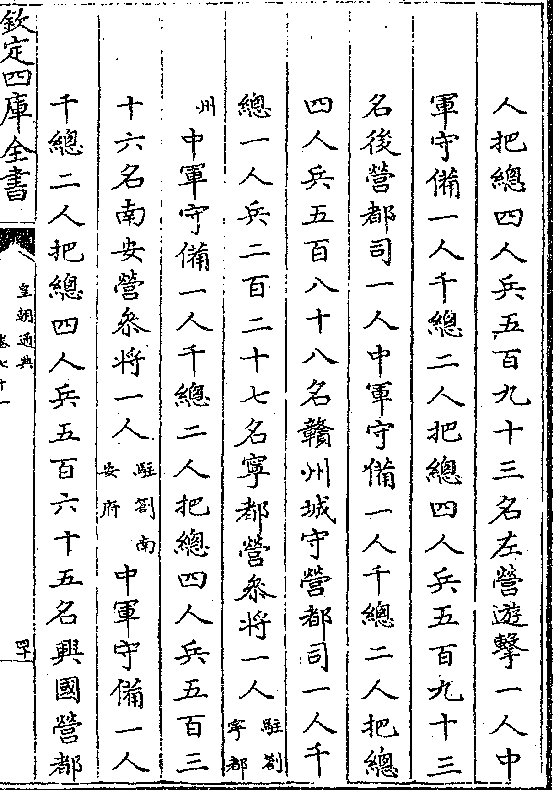 人把總四人兵五百九十三名左營遊擊一人中
軍守備一人千總二人把總四人兵五百九十三
名後營都司一人中軍守備一人千總二人把總
四人兵五百八十八名贛州城守營都司一人千
總一人兵二百二十七名寧都營叅將一人駐劄寧都
州中軍守備一人千總二人把總四人兵五百三
十六名南安營叅將一人駐劄南安府中軍守備一人
千總二人把總四人兵五百六十五名興國營都
欽定四庫全書
皇朝通典
卷七十一